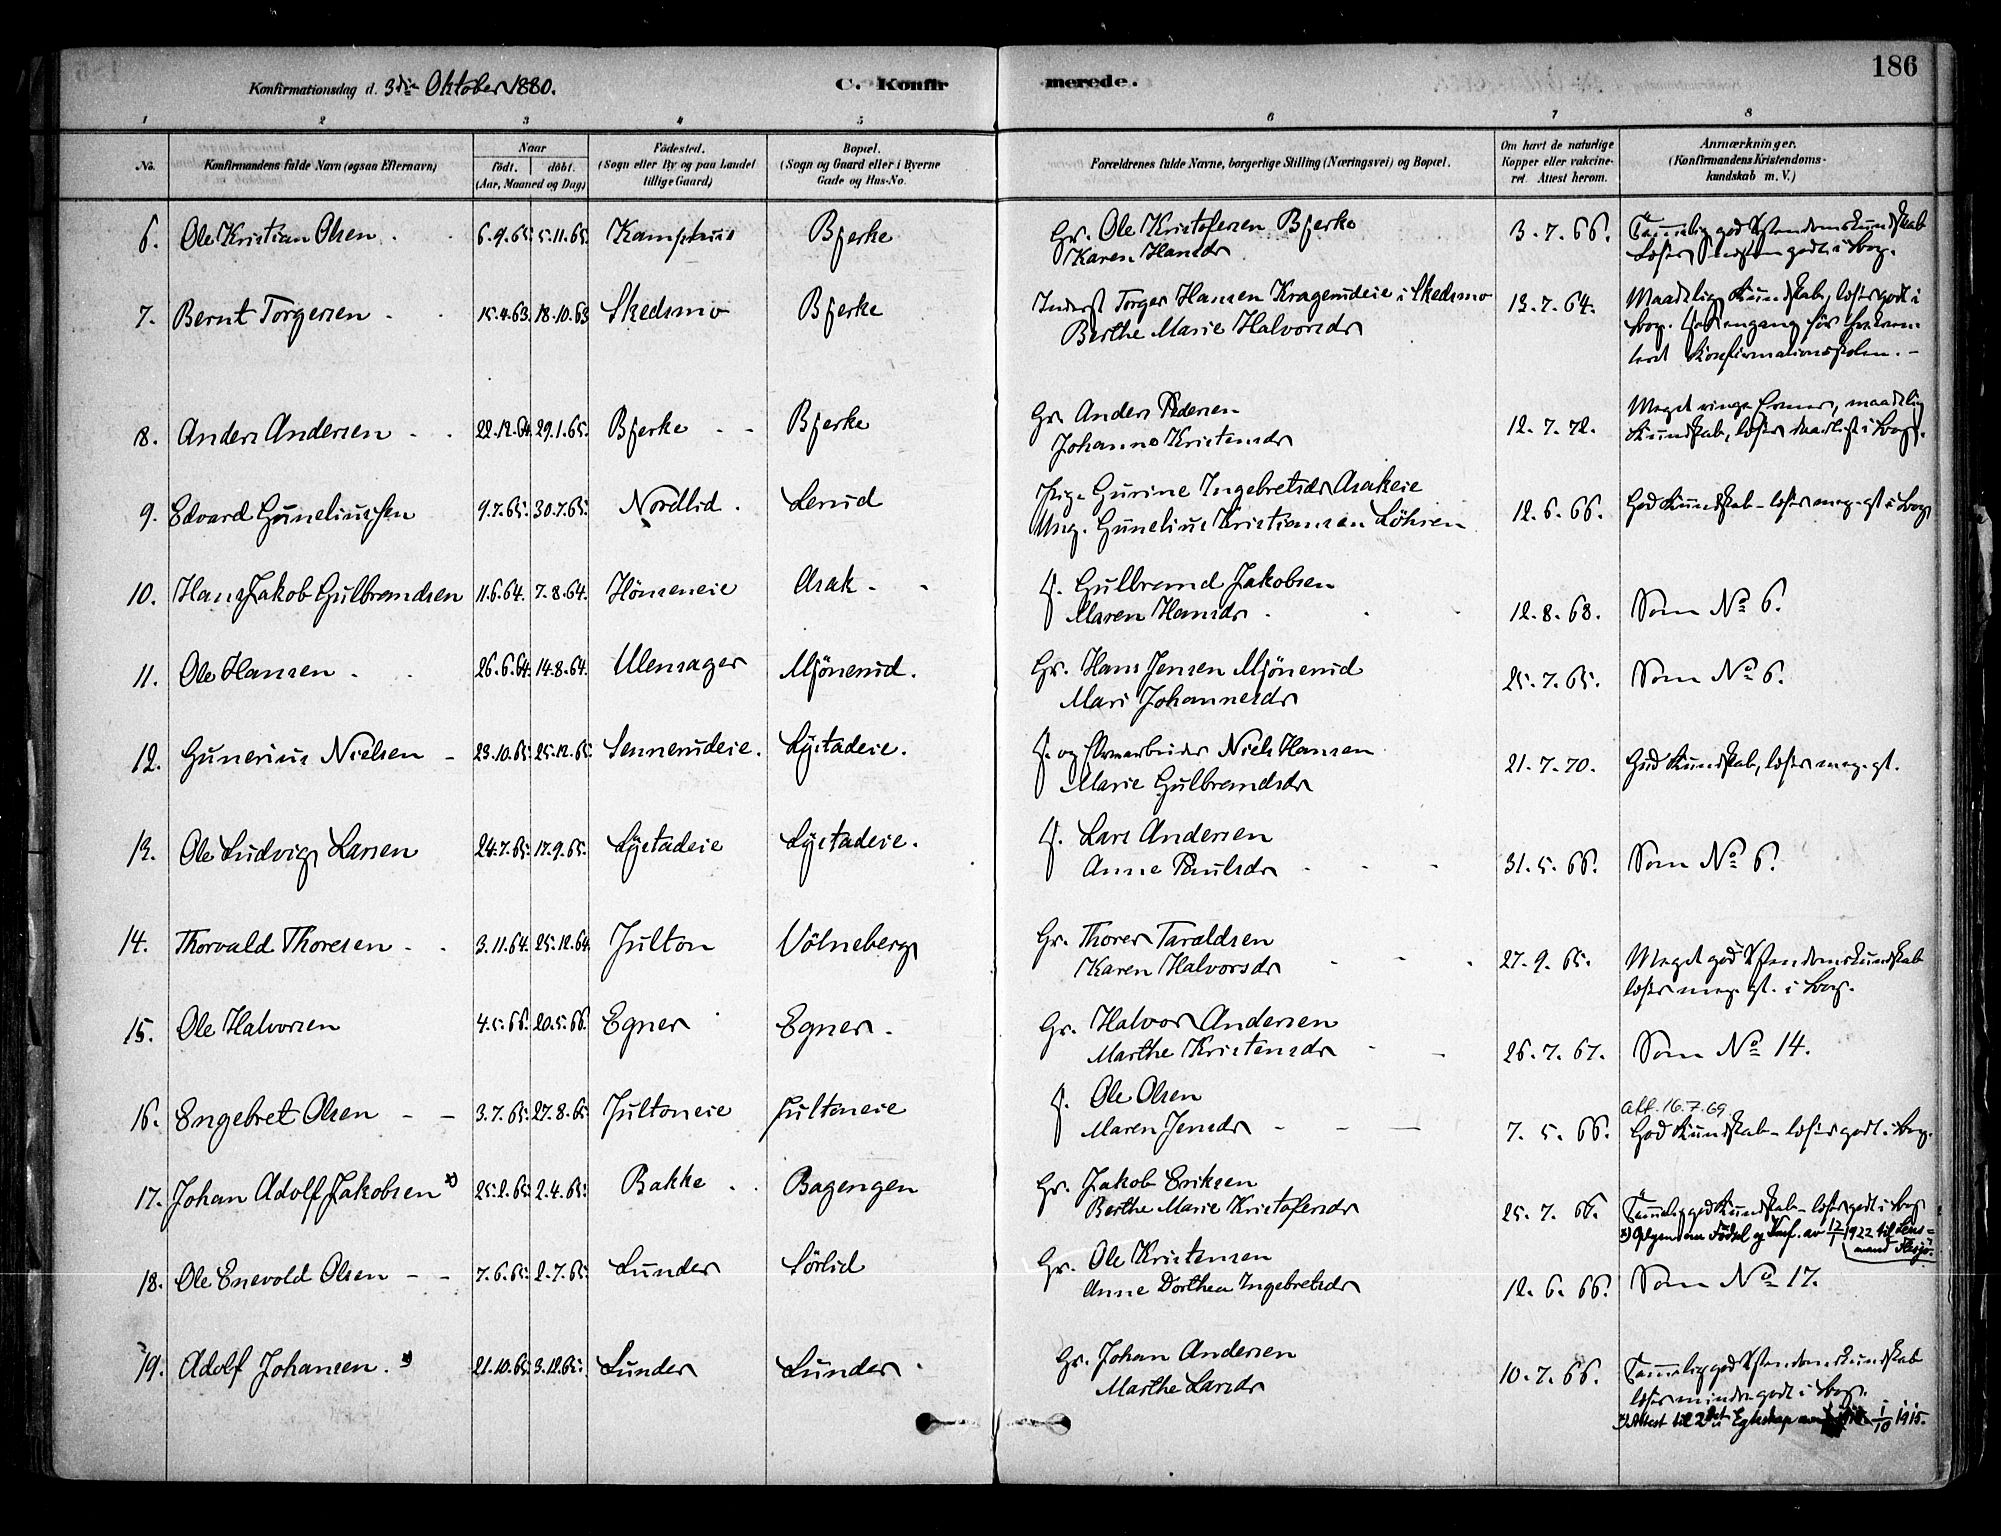 186
Konfirmationsdag d. 3die Oktober 1880. C. Konfirmerede.
1 2 3 4 5 6 7 8
No. Konfirmandens fulde Navn (ogsaa Efternavn) Naar født. døbt. (Aar, Maaned og Dag) Fødested. (Sogn eller By og paa Landet tillige Gaard) Bopæl. (Sogn og Gaard eller i Byerne Gade og Hus-No. Forældrenes fulde Navne, borgerlige Stilling (Næringsvei) og Bopæl. Om havt de naturlige Kopper eller vakcineret. Attest herom. Anmærkninger. (Konfirmandens Kristendomskundskab m. V.)
6. Ole Kristian Olsen 6.9.65 5.11.65 Kamphus Bjerke Gr. Ole Kristofersen Bjerke 3.7.66. Temmelig god Xstendomskundskab
Karen Hansdr læser godt i Bog.
7. Bernt Torgersen 15.4.63 18.10.63 Skedsmo Bjerke Inderst Torger Hansen Kragerudeie i Skedsmo 13.7.64. Maadelig Kundskab, læser godt i
Berthe Marie Halvorsdr Bog. engang før
Konfirmationsskolen.
8. Anders Andersen 22.12.64 29.1.65. Bjerke Bjerke Gr Anders Pedersen 12.7.72. Meget ringe Evner, maadelig
Johanne Kristensdr Kundskab, læser daarligt i Bog.
9. Edvard Guneliussen 9.7.65. 30.7.65. Nordlid. Lerud Pige Gurine Ingebretsdr Asakeie 12.6.66. God Kundskab - læser meg. gt i Bog
Ung. Gunelius Kristiansen Løhren
10. Hans Jakob Gulbrandsen 11.6.64. 7.8.64. Hømeneie Asak F. Gulbrand Jakobsen 12.8.68. Som No 6.
Maren Hansdr
11. Ole Hansen 26.6.64. 14.8.64. Ulensager Mjønerud. Gr. Hans Jensen Mjønerud 25.7.65. Som No 6.
Mari Johannesdr
12. Gunerius Nielsen 23.10.65 25.12.65 Sennerudeie. Lystadeie. F. og Niels Hansen 21.7.70. God Kundskab, læser meg. gt.
Marie Gulbrandsdr
13. Ole Ludvig Larsen 24.7.65. 17.9.65. Lystadeie Lystadeie. F. Lars Andersen 31.5.66. Som No 6.
Anne Paulsdr
14. Thorvald Thoresen 3.11.64. 25.12.64 Julton Vølneberg Gr. Thorer Taraldsen 27.9.65. Meget god Xstendomskundskab
Karen Halvorsdr læser meg. gt. i Bog.
15. Ole Halvorsen 4.5.66. 20.5.66. Egner Egner. Gr. Halvor Andersen 26.7.67. Som No 14.
Marthe Kristensdr
16. Engebret Olsen 3.7.65. 27.8.65 Jultoneie Jultoneie F. Ole Olsen 7.5.66. Att. 16.7.69.
Maren Jensdr God Kundskab - læser godt i Bog.
17. Johan Adolf Jakobsen x) 25.2.65. 2.4.65. Bakke Bagengen Gr. Jakob Eriksen 25.7.66. Temmelig god Kundskab - læser godt i Bog
Berthe Marie Kristofersdr x) Opgen. om Fødsel og Konf. av 17/1 1922 til Lens-
mand
18. Ole Enevold Olsen 7.6.65. 2.7.65. Lunder Sørlid Gr. Ole Kristensen 12.6.66. Som No 17.
Anne Dorthea Ingebretsdr
19. Adolf Johansen. x) 21.10.65 3.12.65. Lunder Lunder Gr. Johan Andersen 10.7.66. Temmelig god Xstendomskundskab
Marthe Larsdr læser mindre godt i Bog.
x) Attest til 2det Egteskap 1/10 1915.